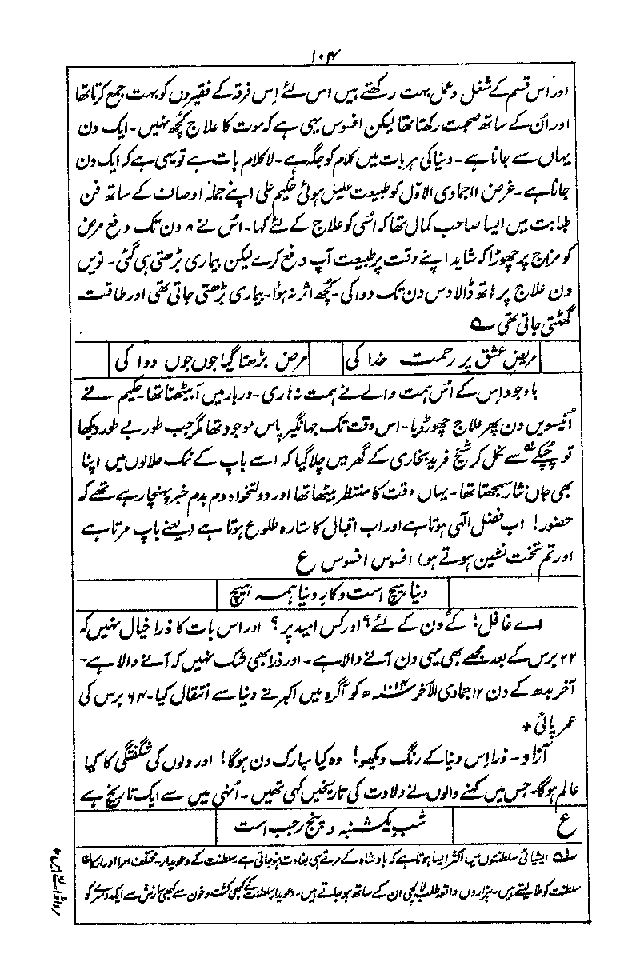 ۱۰۴
اور اس قسم کے شغل و عمل بہت رکھتے ہیں اس لئے اس فرقہ کے فقیروں کو بہت جمع کرتا تھا
اور اُن کے ساتھ صحبت رکھتا تھا لیکن افسوس یہی ہے کہ موت کا علاج کچھ نہیں - ایک دن
یہاں سے جانا ہے - دنیا کی ہر بات میں کلام کو جگہ ہے - لا کلام بات ہے تو یہی ہے کہ ایک دن
جانا ہے - غرض ۱۱ جمادی الاول کو طبیعت علیل ہوئی حکیم علی اپنے جملہ اوصاف کے ساتھ فن
طبابت میں ایسا صاحب کمال تھا کہ اُسی کو علاج کے لئے کہا - اُس نے ۸ دن تک دفع مرض
کو مزاج پر چھوڑا کہ شاید اپنے وقت پر طبیعت آپ دفع کرے لیکن بیماری بڑھتی ہی گئی - نویں
دن علاج پر ہاتھ ڈالا دس دن تک دوا کی - کچھ اثر نہ ہوا - بیماری بڑھتی جاتی تھی اور طاقت
گھٹتی جاتی تھی ؎
مریض عشق پر رحمت خدا کی مرض بڑھتا گیا جوں جوں دوا کی
باوجود اس کے اُس ہمت والے نے ہمت نہ ہاری - دربار میں آ بیٹھتا تھا حکیم نے
اُنیسویں دن پھر علاج چھوڑ دیا - اس وقت تک جہانگیر پاس موجود تھا مگر جب طور بے طور دیکھا
تو چپکے سے نکل کر شیخ فرید بخاری کے گھر میں چلا گیا کہ اسے باپ کے نمک حلالوں میں اپنا
بھی جاں نثار سمجھتا تھا - یہاں وقت کا منتظر بیٹھا تھا اور دولتخواہ دم بدم خبر پہنچا رہے تھے کہ
حضور! اب فضل الٰہی ہوتا ہے اور اب اقبال کا ستارہ طلوع ہوتا ہے (یعنے باپ مرتا ہے
اور تم تخت نشین ہوتے ہو) افسوس افسوس ع
دنیا ہیچ است و کار دنیا ہمہ ہیچ
اے غافل! کے دن کے لئے؟ اور کس امید پر؟ اور اس بات کا ذرا خیال نہیں کہ
۲۲ برس کے بعد مجھے بھی یہی دن آنے والا ہے - اور ذرا بھی شک نہیں کہ آنے والا ہے -
آخر بدھ کے دن ۱۲ جمادی الآخر ۱۰۱۴ھ کو آگرہ میں اکبر نے دنیا سے انتقال کیا - ۶۴ برس کی
عمر پائی +
آزاد - ذرا اس دنیا کے رنگ دیکھو! وہ کیا مبارک دن ہوگا! اور دلوں کی شگفتگی کا کیا
عالم ہوگا - جس میں کہنے والوں نے ولادت کی تاریخیں کہی تھیں - اُنہی میں سے ایک تاریخ ہے
ع شب یکشنبہ و پنج رجب است
؎ ایشیائی سلطنتوں میں اکثر ایسا ہوتا ہے کہ بادشاہ کے مرتے ہی بغاوت ہو جاتی ہے سلطنت کے دعویدار
سلطنت کو ملا لیتے ہیں - ہزاروں واقعہ طلب بھی ان کے ساتھ ہو جاتے ہیں - دعویدار سلطنت کبھی کشت و خون سے کبھی سازش سے ایک دوسرے کو